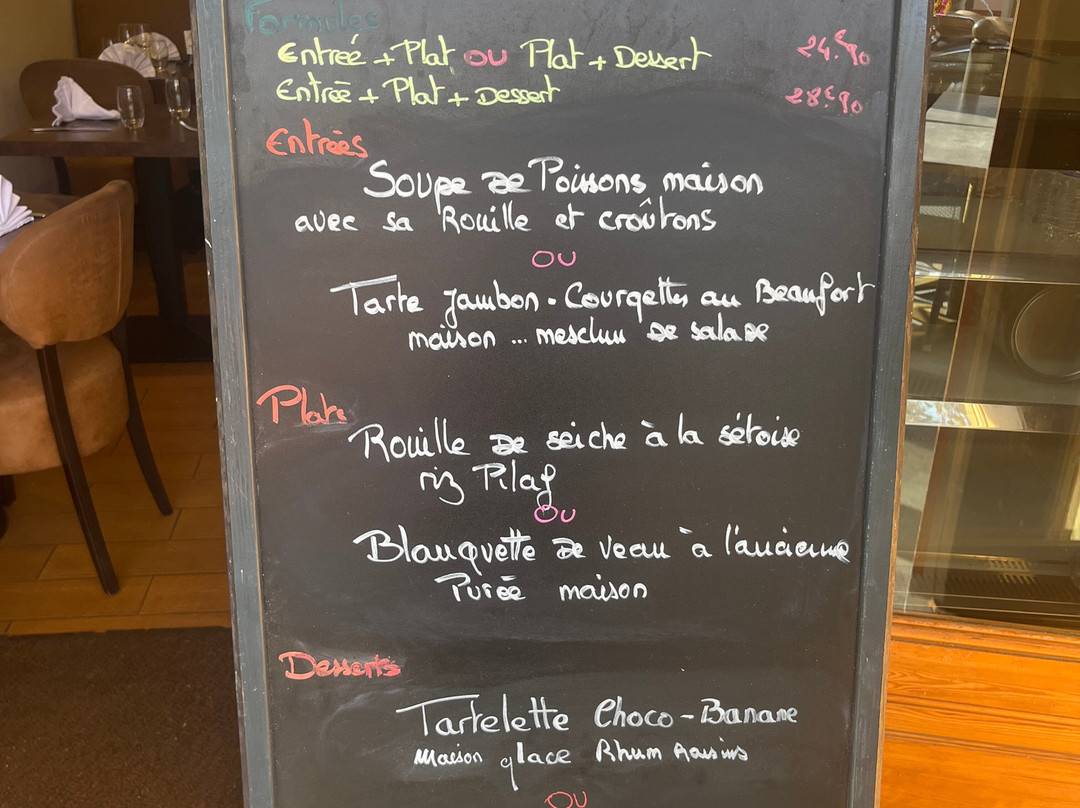 Formules
Entreé + Plat OU Plat + Dessert 24.€90
Entreē + Plat + Dessert 28.€90
Entrées
Soupe de Poissons maison
avec sa Rouille et croûtons
OU
Tarte jambon - Courgettes au Beaufort
maison ... mesclun de salade
Plats
Rouille de seiche à la sétoise
riz Pilaf
OU
Blanquette de veau à l'ancienne
Purée maison
Desserts
Tartelette Choco - Banane
Maison glace Rhum Raisins
OU